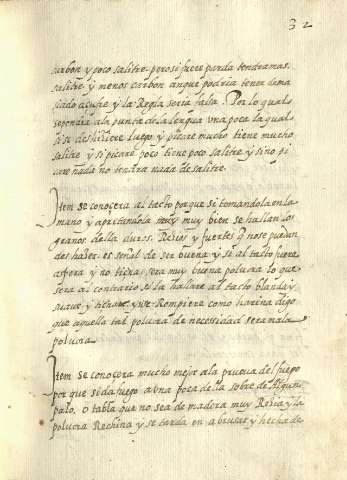 32
carbon y poco salitre. pero si fuere parda tendra mas
salitre y menos carbon aunque podria tener dema
siado açufre y la Regla seria falsa. Por lo qual se
pondra a la punta de la lengua vna poca la qual
si se deshiziere luego y picare mucho tiene mucho
salitre y si picare poco tiene poco salitre y si no pi
care nada no tendra nada de salitre.
Item se conoçera al tacto porque si tomandola en la
mano y apretandola muy bien se hallan los
granos della duros. Rezios y fuertes q̃ no se puedan
deshazer. es señal de ser buena y si al tacto fuere
aspera y no tizna, sera muy buena poluora lo que
sera al contrario si la hallare al tacto blanda y
suaue y tiznare y se Rompiere como harina digo
que aquella tal poluora de necessidad sera mala
poluora.
Item se conocera mucho mejor a la prueua del fuego
porque si da fuego a vna poca de lla sobre de algun
palo, o tabla que no sea de madera muy Rezia y la
poluora Rechina y se tarda en abrasar y hecha de